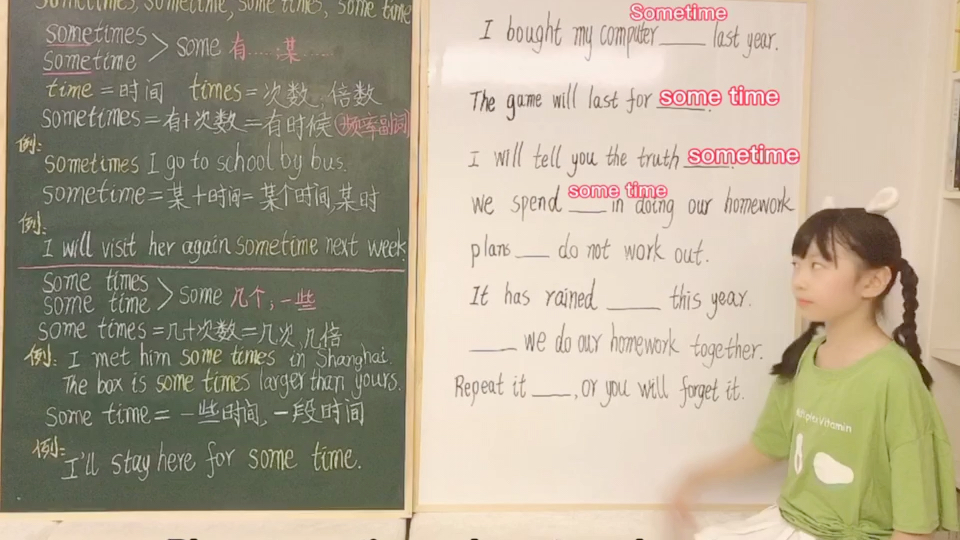 sometimes, sometime, some times, some time
sometimes
sometime
> some 有……;某……
time = 时间 times = 次数,倍数
sometimes = 有+次数 = 有时候 (频率副词)
例:
sometimes I go to school by bus.
sometime = 某+时间 = 某个时间,某时
例:
I will visit her again sometime next week.
some times
some time
> some 几个,一些
some times = 几+次数 = 几次,几倍
例: I met him some times in Shanghai.
The box is some times larger than yours.
some time = 一些时间,一段时间
例:
I'll stay here for some time.
Sometime
I bought my computer ____ last year.
The game will last for some time.
I will tell you the truth sometime.
some time
we spend ____ in doing our homework
plans ____ do not work out.
It has rained ____ this year.
____ we do our homework together.
Repeat it ____, or you will forget it.
Vitamin